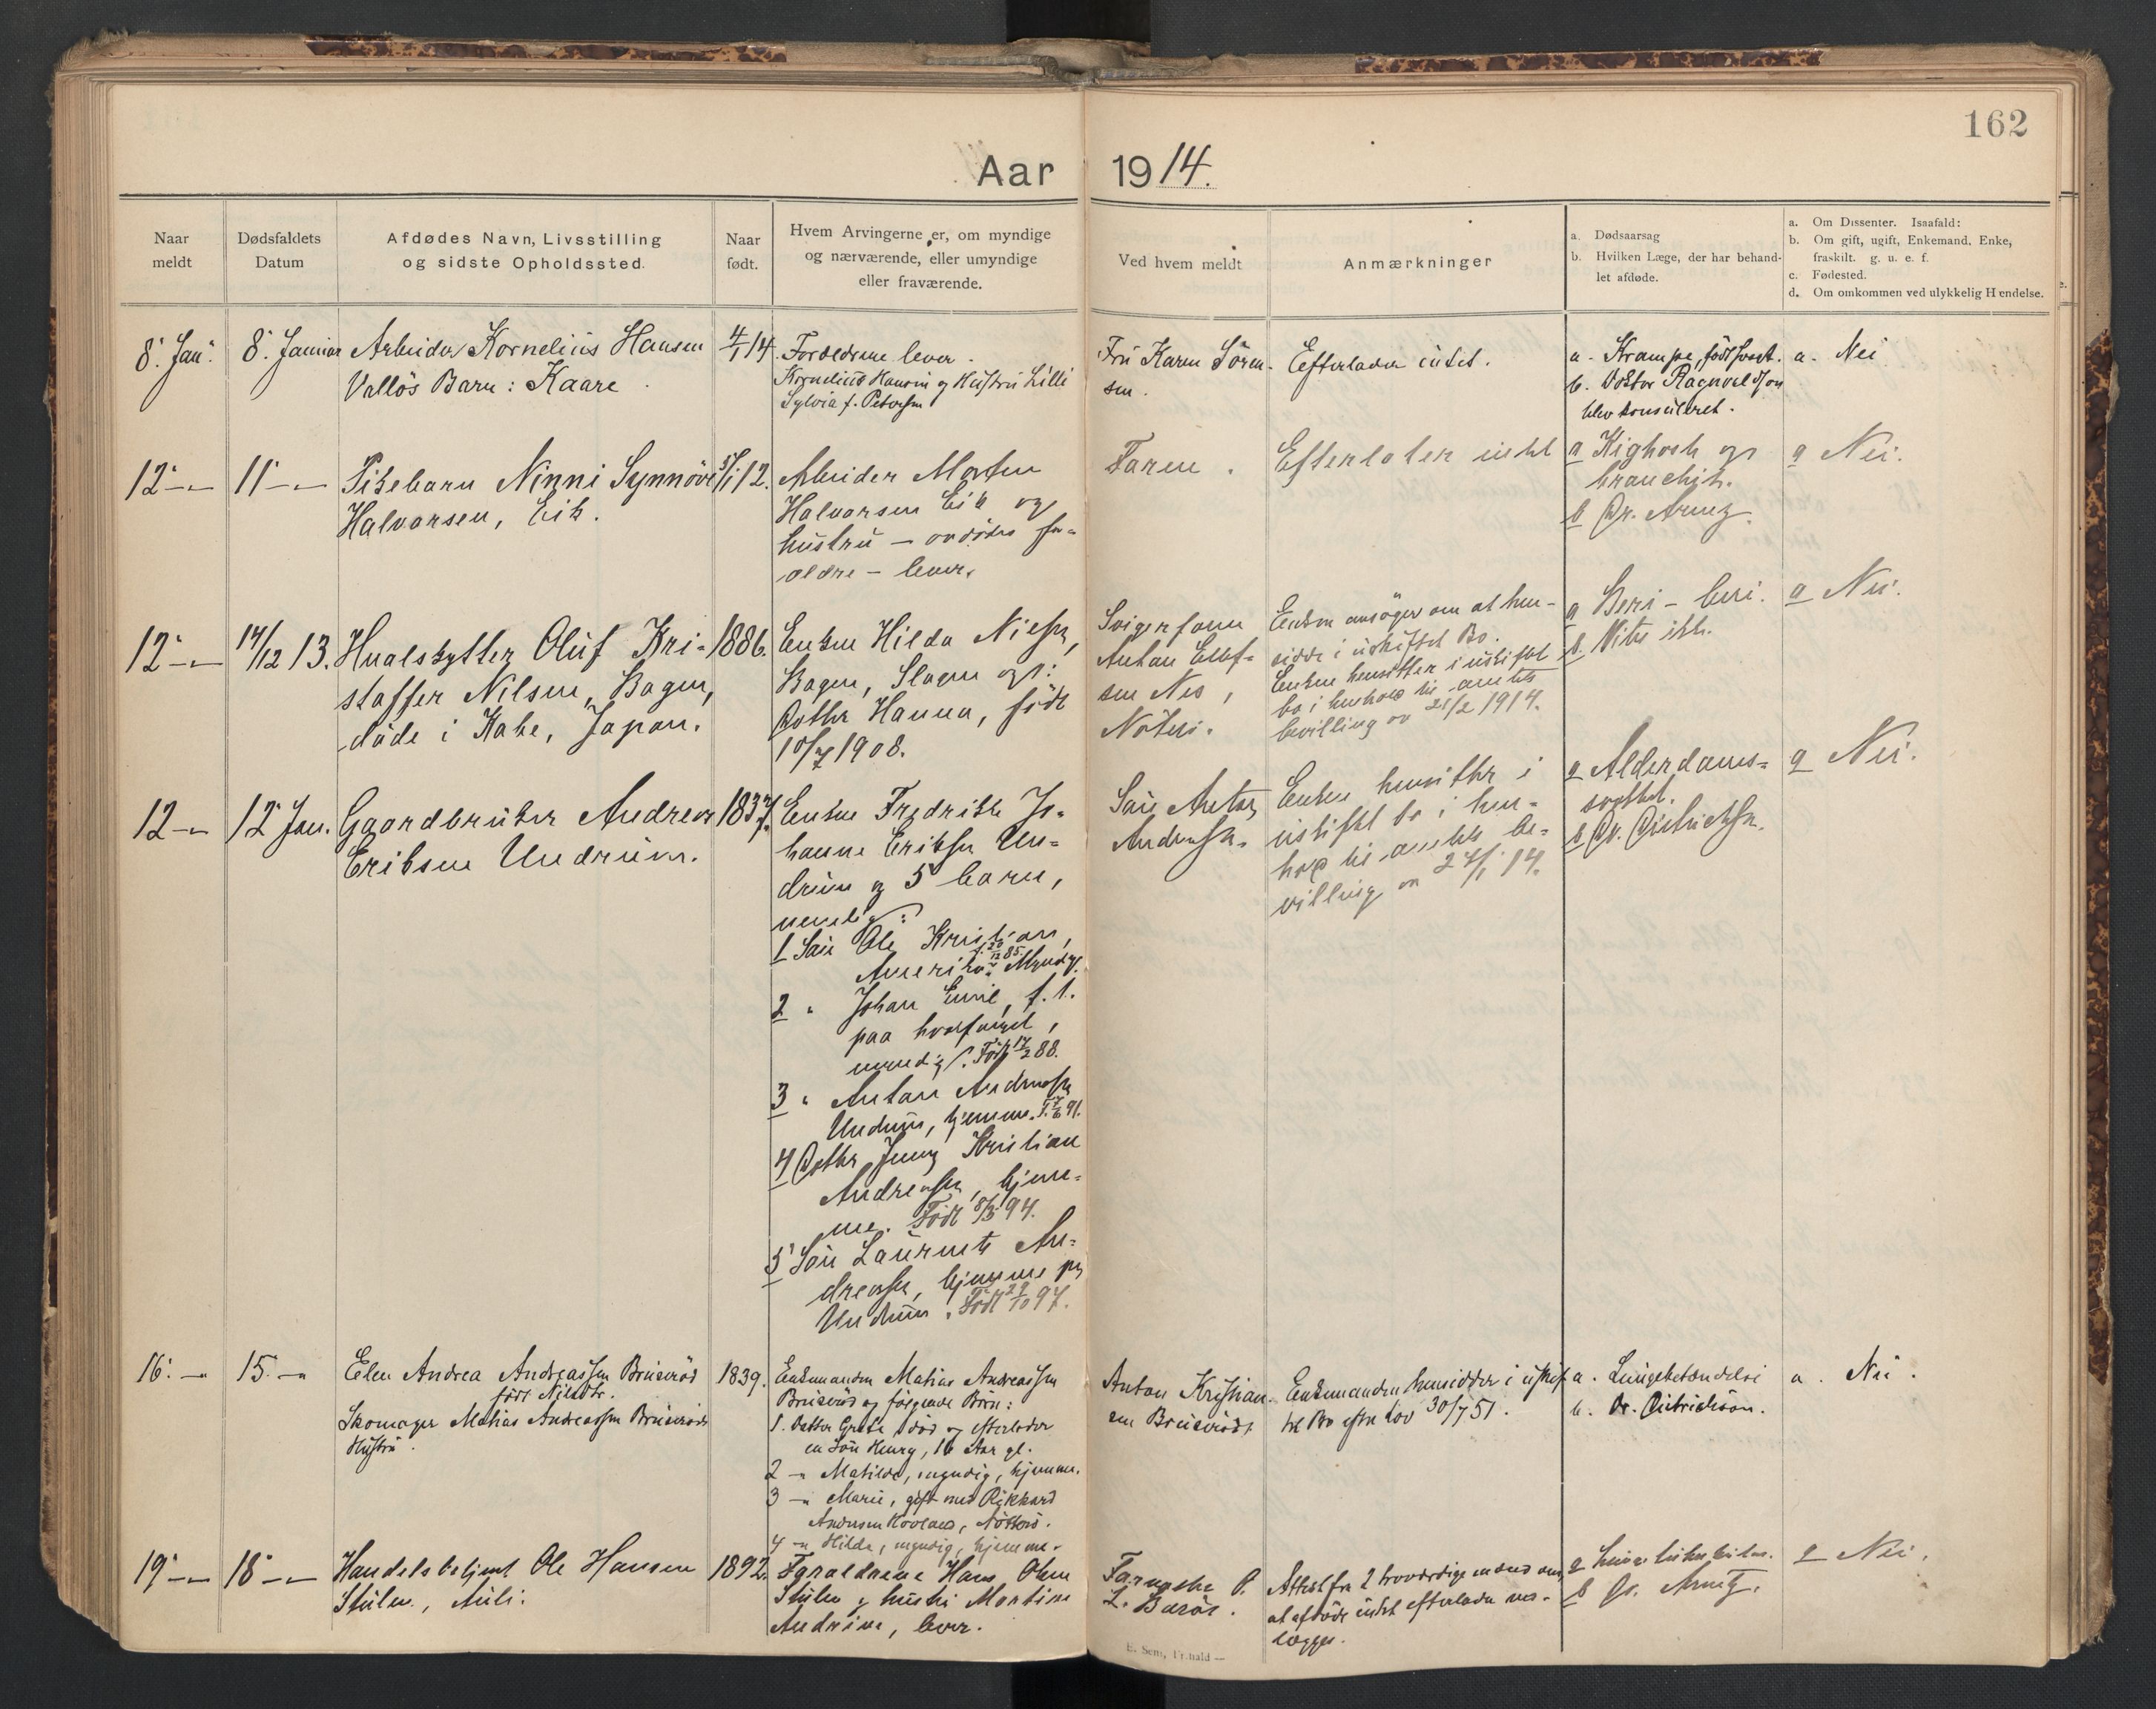 162
Aar 1914.
Naar meldt
Dødsfaldets Datum
Afdødes Navn, Livsstilling
og sidste Opholdssted.
Naar født.
Hvem Arvingerne er, om myndige
og nærværende, eller umyndige
eller fraværende.
Ved hvem meldt
Anmærkninger
a. Dødsaarsag
b. Hvilken Læge, der har behand-
let afdøde.
a. Om Dissenter. Isaafald:
b. Om gift, ugift, Enkemand, Enke,
fraskilt. g. u. e. f.
c. Fødested.
d. Om omkommen ved ulykkelig Hendelse.
8. Jan.
8. Januar
Arbeider Kornelius Hansen
Valløs Barn: Kaare.
4/1 14.
Forældrene lever.
Kornelius Hansen og Hustru Lilli
Sylvia f. Petersen
Fru Karen Sören-
sen.
Efterlader intet.
a. Krampe, født svagt.
b. Doktor Ragnvaldson
blev konsuleret.
a. Nei
12 —
11 —
Pikebarn Ninni Synnöve
Halvorsen, Eik.
12.
Arbeider Marten
Halvorsen Eik og
hustru — avdødes for-
ældre — lever.
Faren.
Efterlater intet
a Kighoste og
bronchit.
b Dr. Arentz.
a Nei.
12 —
14/12 13.
Hvalskytter Oluf Kri-
stoffer Nilsen, Bagen,
døde i Kobe, Japan.
1886.
Enken Hilda Nilsen,
Bagen, Slagen og:
Datter Hanna, født
10/7 1908.
Svigerfaren
Anton Elof-
sen Nes,
Nøterö.
Enken ansøger om at hen-
sidde i uskiftet Bo.
Enken hensitter i uskiftet
bo i henhold til amtets
bevilling av 21/2 1914.
a Beri-beri.
b Vites ikke.
a Nei.
12 —
12 Jan.
Gaardbruker Andreas
Eriksen Undrum.
1837.
Enken Fredrikke Jo-
hanne Eriksen Un-
drum og 5 barn,
nemlig:
1 Søn Ole Kristian,
Amerika, f. 20/12 85. Myndig.
2 " Johan Emil, f. t.
paa hvalfangst,
myndig. Født 17/2 88.
3 " Anton Andreassen
Undrum, hjemme. F. 7/6 91.
4 Datter Jenny Kristian
Andreassen, hjem-
me. Født 8/5 94.
5 Søn Laurents An-
dreassen, hjemme paa
Undrum. Født 29/10 97.
Søn Anton
Andreassen.
Enken hensitter i
uskiftet bo i hen-
hold til amtets be-
villing av 24/1 14.
a Alderdoms-
svækket.
b Dr. Didrichsen.
a Nei.
16. —
15. —
Elen Andrea Andreassen Bruserød
født Nilsdtr.
Skomager Matias Andreassen Bruserøds
Hustru.
1839.
Enkemanden Matias Andreassen
Bruserød og følgende Børn:
1. Datter Grete, død og efterlader
en Søn Henry, 16 Aar gl.
2 — Matilde, myndig, hjemme.
3 — Marie, gift med Rikhard
Andersen Hovland, Nötterö.
4 — Hilda, myndig, hjemme.
Anton Kristian-
sen Bruserød
Enkemanden hensidder i uskif-
tet Bo efter Lov 30/7 51.
a. Lungebetændelse
b. Dr. Didrichsen.
a. Nei.
19 —
18 —
Handelsbetjent Ole Hansen
Stulen, Auli.
1892.
Forældrene Hans Olsen
Stulen og hustru Martine
Andrine, lever.
O.
L. Berös.
Attest fra 2 troværdige mænd om,
at afdøde intet efterlader ved-
lægges.
a Lungetuberkulos.
b Dr. Arentz.
a Nei.
E. Sem, Fr.hald —